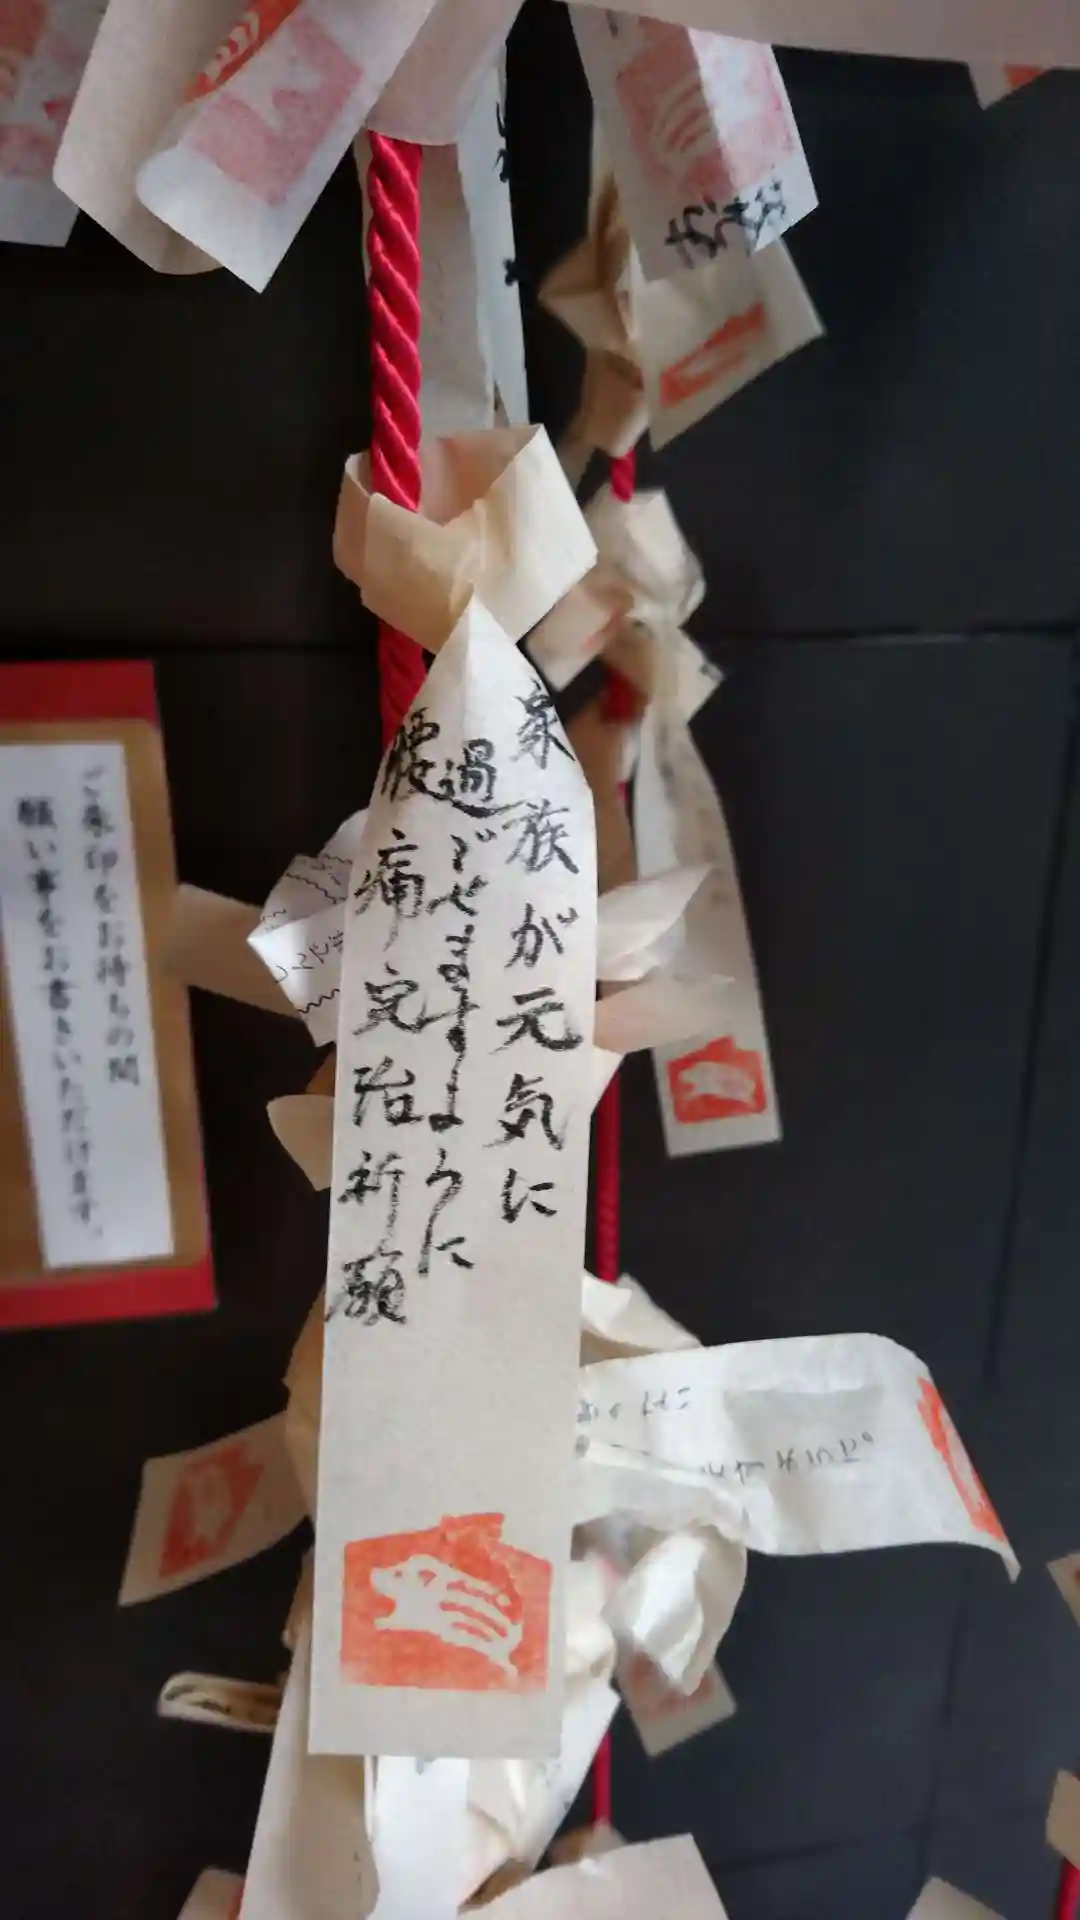 家族が元気に
過ごせますように
腰痛完治祈願
ご朱印をお持ちの間
願い事をお書きいただけます。